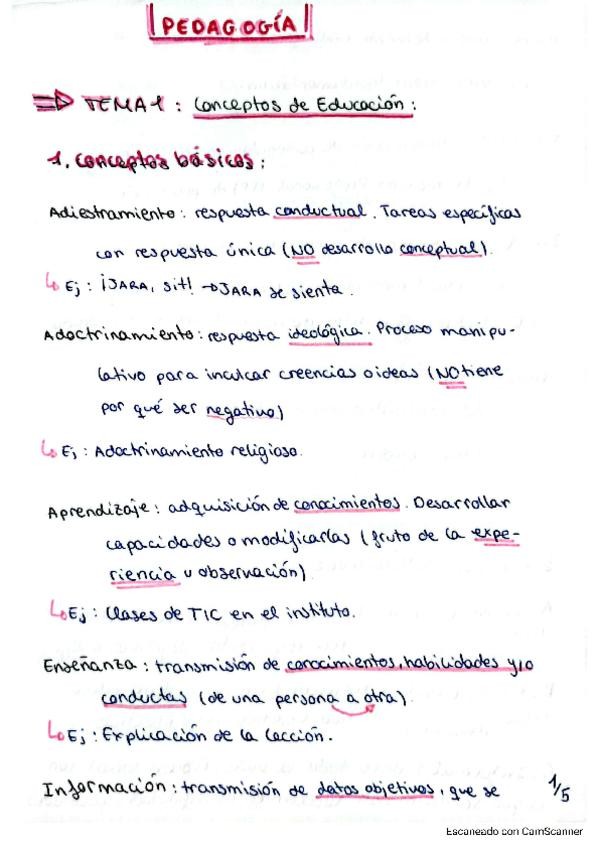 PEDAGOGÍA
TEMA 1 : Conceptos de Educación :
1. Conceptos básicos :
Adiestramiento : respuesta conductual. Tareas específicas
con respuesta única (NO desarrollo conceptual).
Ej : ¡JARA, sit! → JARA se sienta.
Adoctrinamiento : respuesta ideológica. Proceso manipu-
lativo para inculcar creencias o ideas (NO tiene
por qué ser negativo)
Ej : Adoctrinamiento religioso.
Aprendizaje : adquisición de conocimientos. Desarrollar
capacidades o modificarlas (fruto de la expe-
riencia u observación)
Ej : Clases de TIC en el instituto.
Enseñanza : transmisión de conocimientos, habilidades y/o
conductas (de una persona a otra).
Ej : Explicación de la lección.
Información : transmisión de datos objetivos, que se
1/5
Escaneado con CamScanner